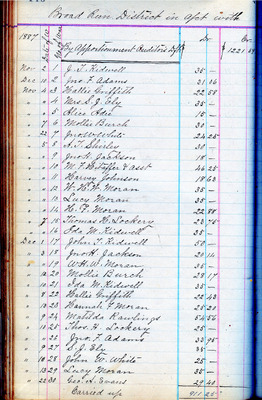 Broad Run District in acpt with
1887 Dr Cr
By Apportionment Auditors Offs 1221 89
Nov 2 1 J. T. Kidwell 35 -
Dec 10 2 Jno F. Adams 31 36
Nov 4 3 Hallie Griffith 22 58
4 Mrs S. J. Ely 35 -
5 Alice Adie 15 -
6 Mollie Burch 30 -
7 Jno W. White 24 25
8 A. T. Shirley 30 -
9 Jno H. Jackson 18 -
10 M. F. & Taffer & asst 44 25
11 Harvey Johnson 18 63
12 W. H. W. Moran 35 -
13 Lucy Moran 35 -
14 H. F. Moran 22 88
15 Thomas H. Lockery 23 75
16 Ida M. Kidwell 35 -
Dec 1 17 John T. Kidwell 50 -
19 Jno H. Jackson 20 14
19 W. H. W. Moran 35 -
20 Mollie Burch 28 17
21 Ida M. Kidwell 35 -
22 Hallie Griffith 22 48
23 Hannah F. Moran 25 21
24 Matilda Rawlings 54 56
25 Thos. H. Lockery 25 -
26 Jno F. Adams 33 75
27 S. J. Ely 35 -
28 John W. White 25 -
29 Lucy Moran 35 -
22 30 Geo. A. Evans 29 40
Carried up 911 25